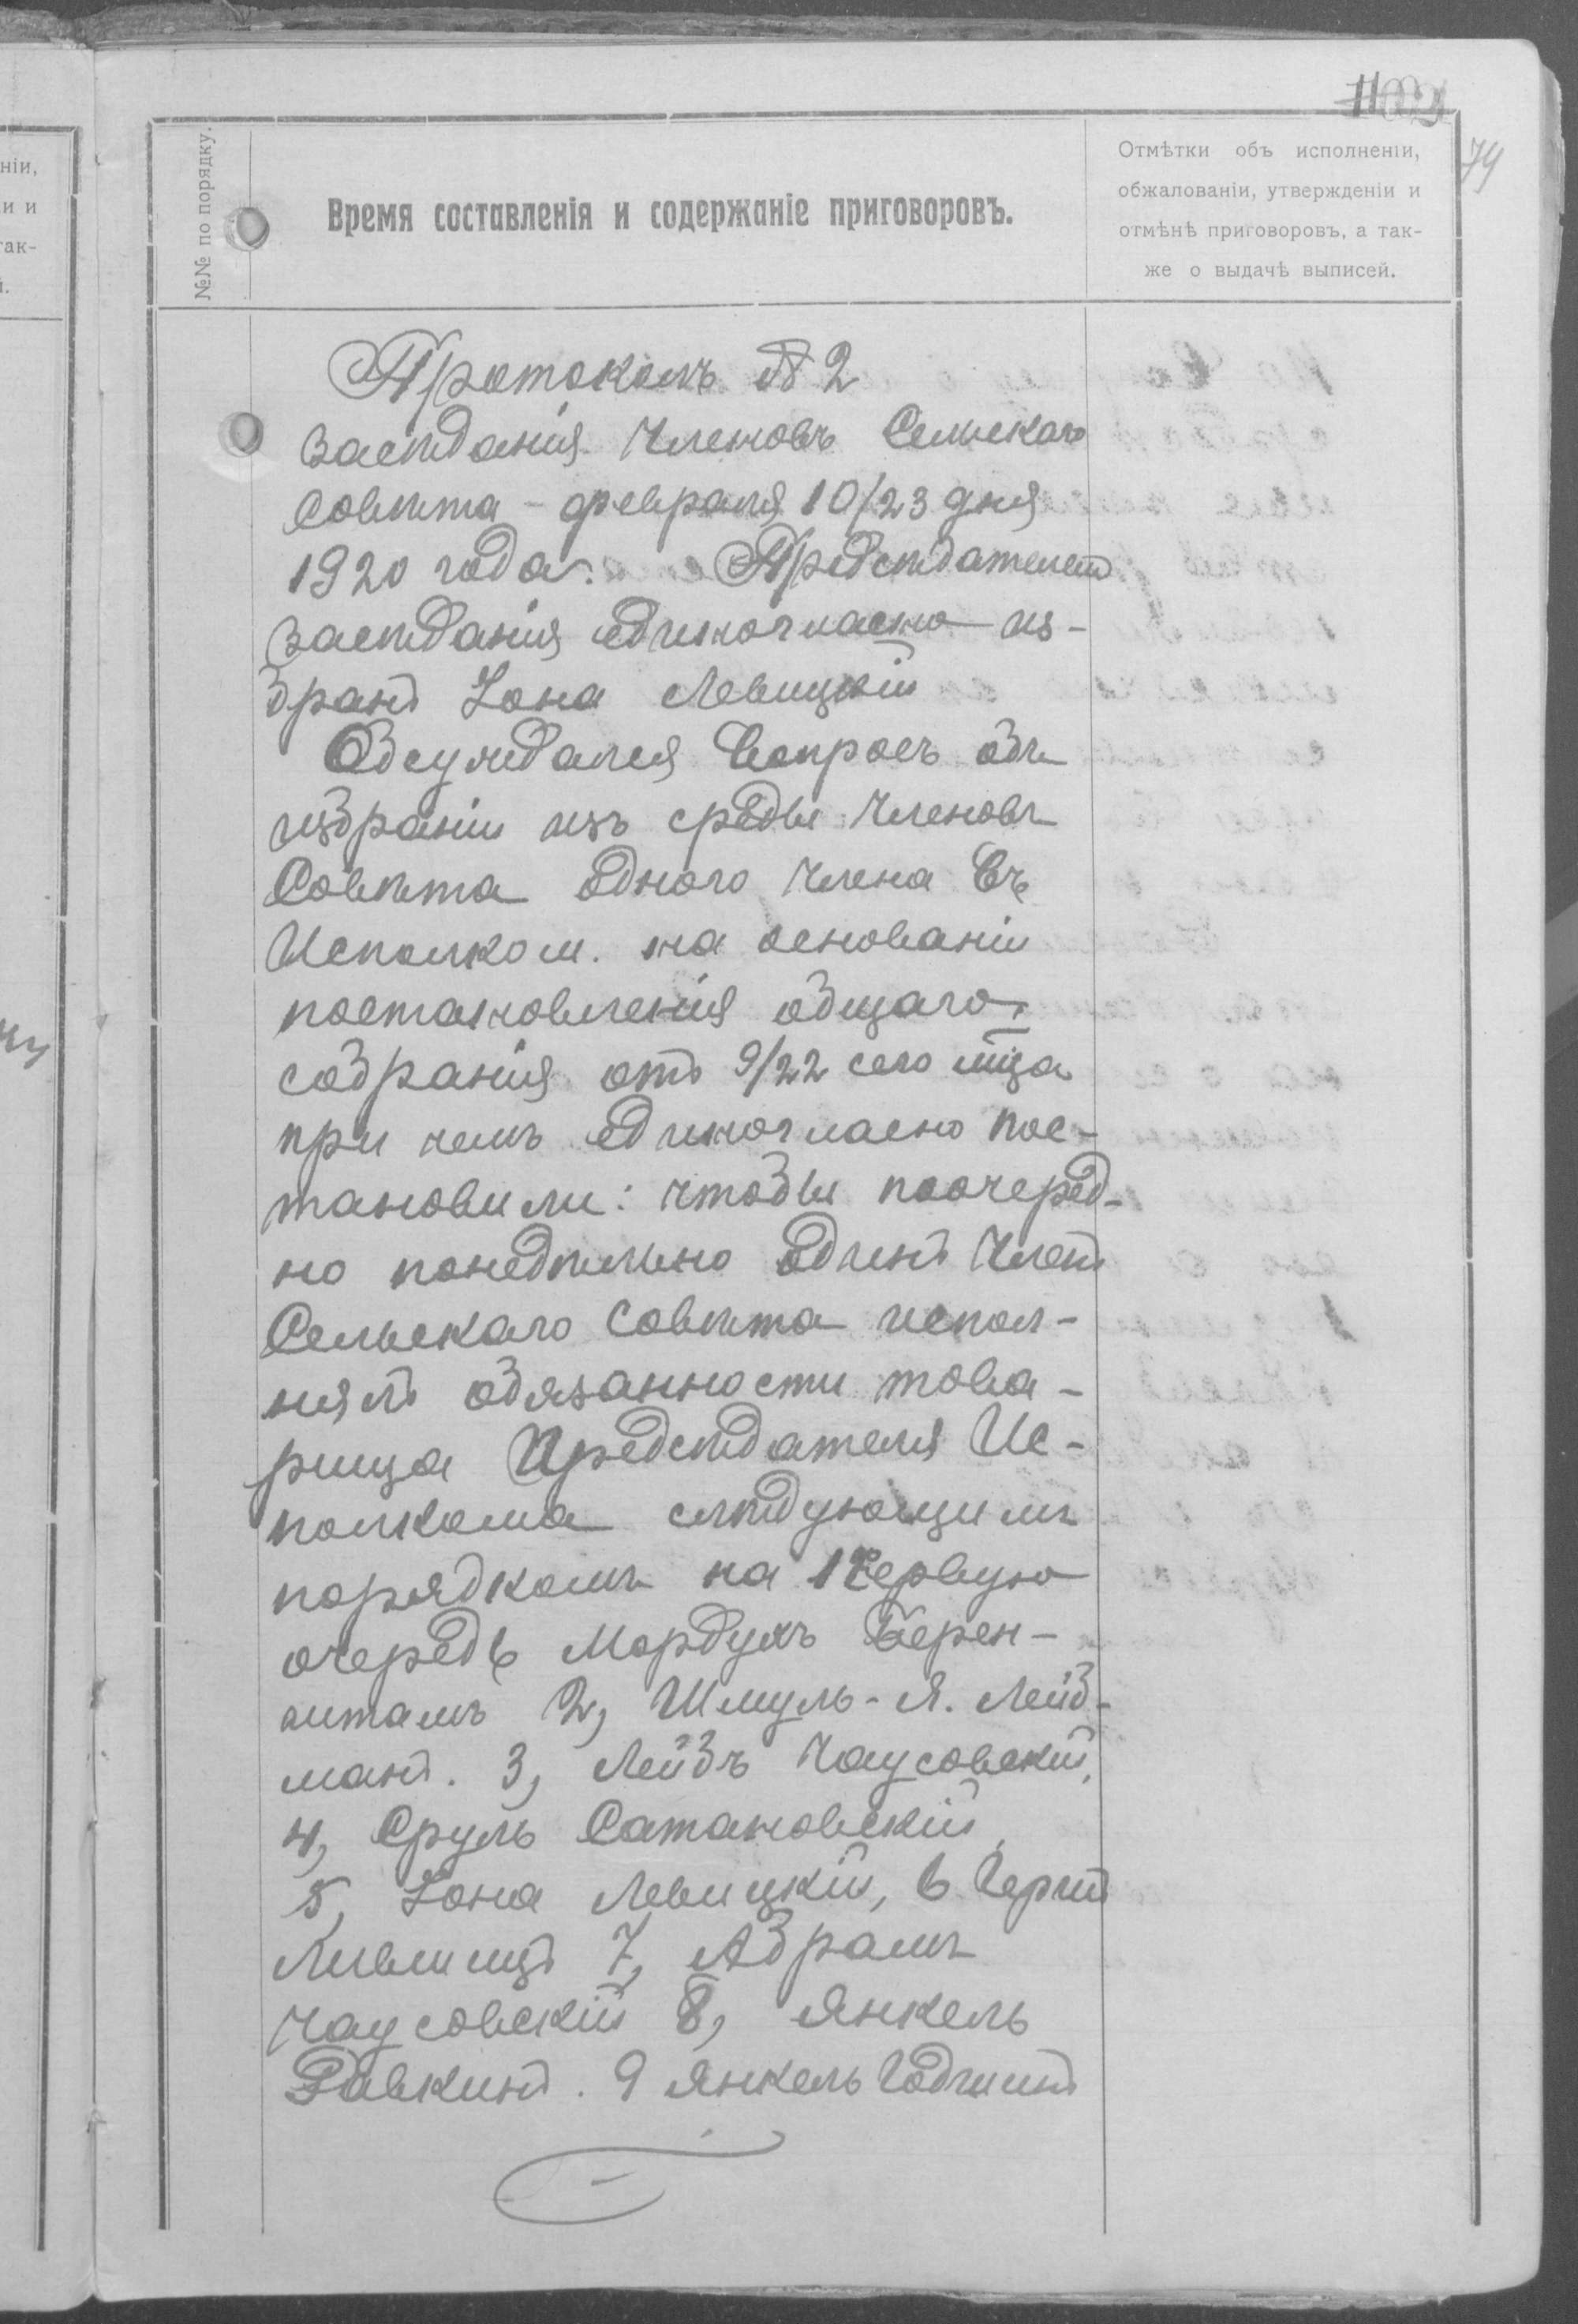 74
№№ по порядку.
Время составленія и содержаніе приговоровъ.
Отмѣтки объ исполненіи,
обжалованіи, утвержденіи и
отмѣнѣ приговоровъ, а так-
же о выдачѣ выписей.
Протоколъ № 2
засѣданія Членовъ Сельскаго
Совѣта – февраля 10/23 дня
1920 года. Предсѣдателемъ
засѣданія единогласно из-
бранъ Іона Левицкій
Обсуждался Вопросъ объ
избраніи изъ среды Членовъ
Совѣта одного Члена Въ
Исполком. на основаніи
постановленія общаго
собранія отъ 9/22 сего мѣца
при чемъ единогласно пос-
тановили: чтобы поочеред-
но понедѣльно одинъ Членъ
Сельскаго Совѣта испол-
нялъ обязанности това-
рища Предсѣдателя Ис-
полкома слѣдующимъ
порядкомъ на 1 Первую
очередь Мордухъ Берен-
штамъ 2, Шмуль-Я. Лейб-
манъ. 3, Лейбъ Чаусовскій,
4, Сруль Сатановскій,
5, Іона Левицкій, 6
Лившицъ 7, Абрамъ
Чаусовскій 8, Янкель
Равкинъ. 9 Янкель